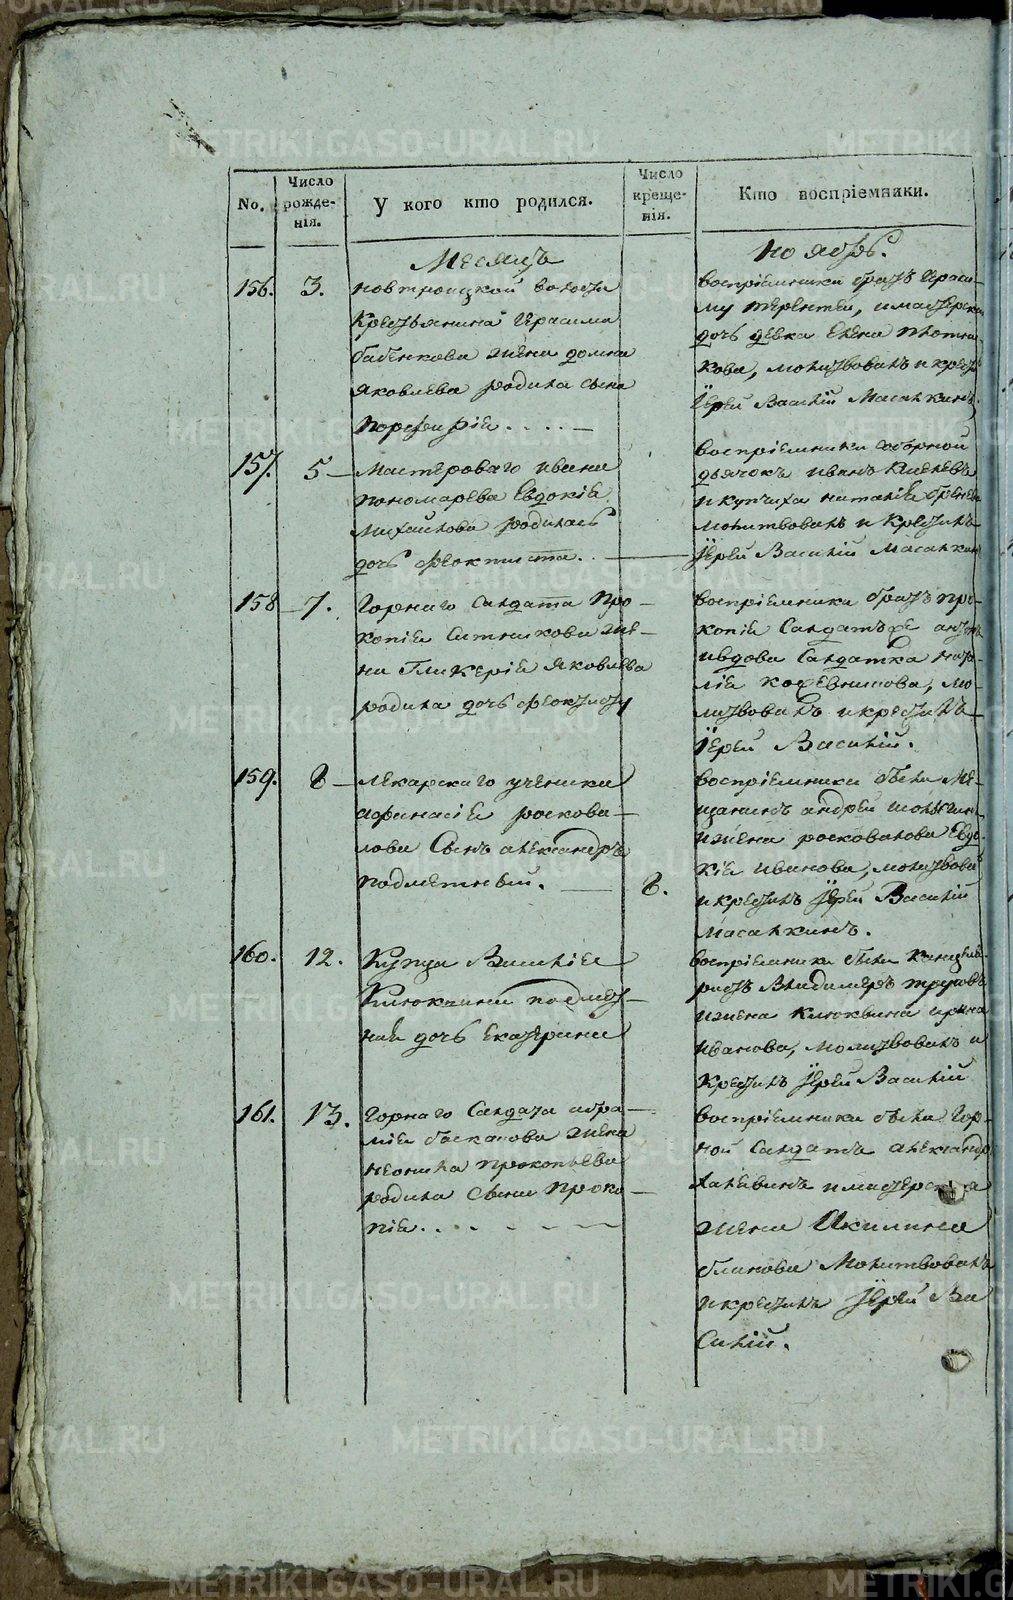 METRIKI.GASO-URAL.RU
No.
Число рожде-нія.
У кого кто родился.
Число креще-нія.
Кто воспріемники.
Месяцъ
ноябрь.
156. 3.
новтроицкой волости
Крестьянина Герасима
бабенкова жена домна
яковлева родила сына
порфирія
воспріемники братъ Гераси-
му терентей, имастерская
дочь девка Елена плотни-
кова, молитвовалъ икрест
Іерей Василій Масалкинъ,
157. 5
Мастероваго ивана
пономарева Евдокія
михайлова родилась
дочь феоктиста.
воспріемники соборной
дьячокъ иванъ
икупчиха наталія
молитвовалъ и Крестилъ
Іерей Василій Масалкин
158 7.
Горнаго Салдата Про-
копія Ситникова же-
на Гликерія яковлева
родила дочь феоклисту
воспріемники братъ про-
копія Салдатъ
ивдова Салдатка ната-
лія мо-
литвовалъ икрестилъ
Іерей Василій.
159. 8
лекарскаго ученика
афанасія роскова-
лова Сынъ александръ
подметный. 8.
воспріемники были ме-
щанинъ андрей
ижена росковалова Евдо-
кія иванова, молитвовал
икрестилъ Іерей Василій
масалкинъ.
160. 12.
Купца Василія
Клюквина подмет-
ная дочь екатерина
воспріемники были канцеля-
ристъ Владимеръ
ижена клюквина ирина
иванова, молитвовалъ и
крестилъ Іерей Василій
161. 13.
Горнаго Салдата абра-
мія баскакова жена
неонила прокопьева
родила сына проко-
пія.
воспріемники были Гор-
ной Салдатъ александр
имастерска а
жена Акилина
блинова молитвовалъ
икрестилъ Іерей Ва
Силій.